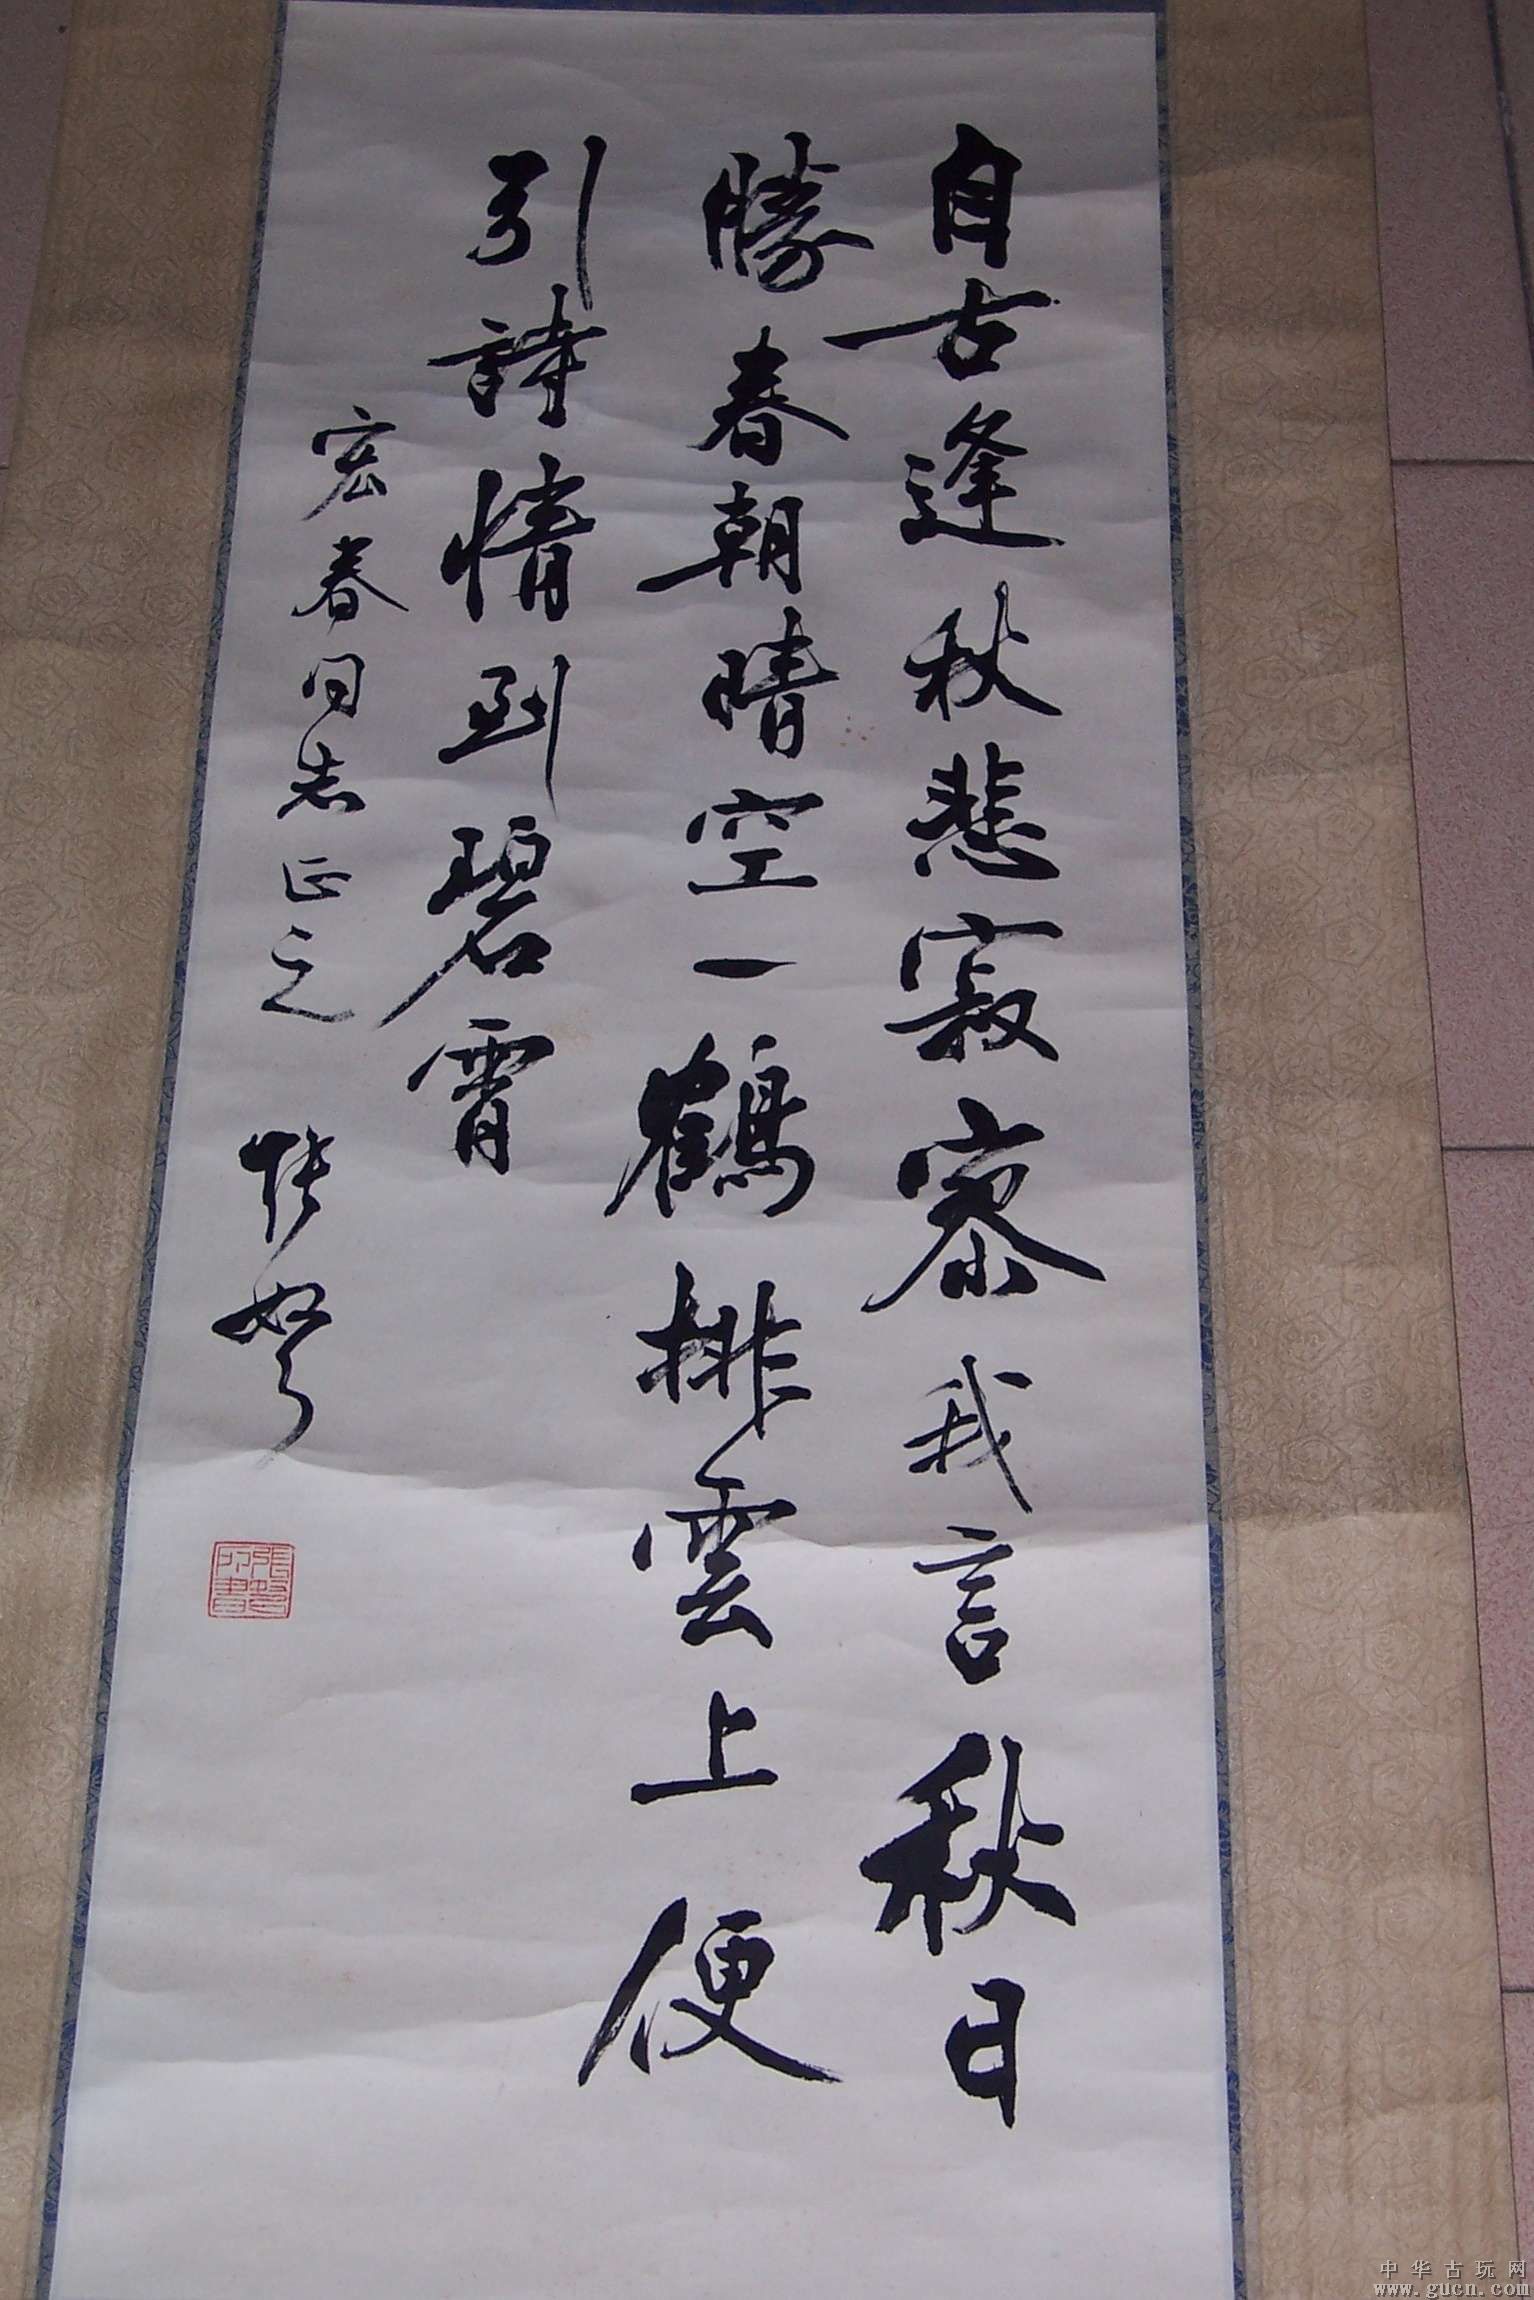 自古逢秋悲寂寥我言秋日
勝春朝晴空一鶴排雲上便
引詩情到碧霄
宏春同志正之
中华古玩网
www.gucn.com